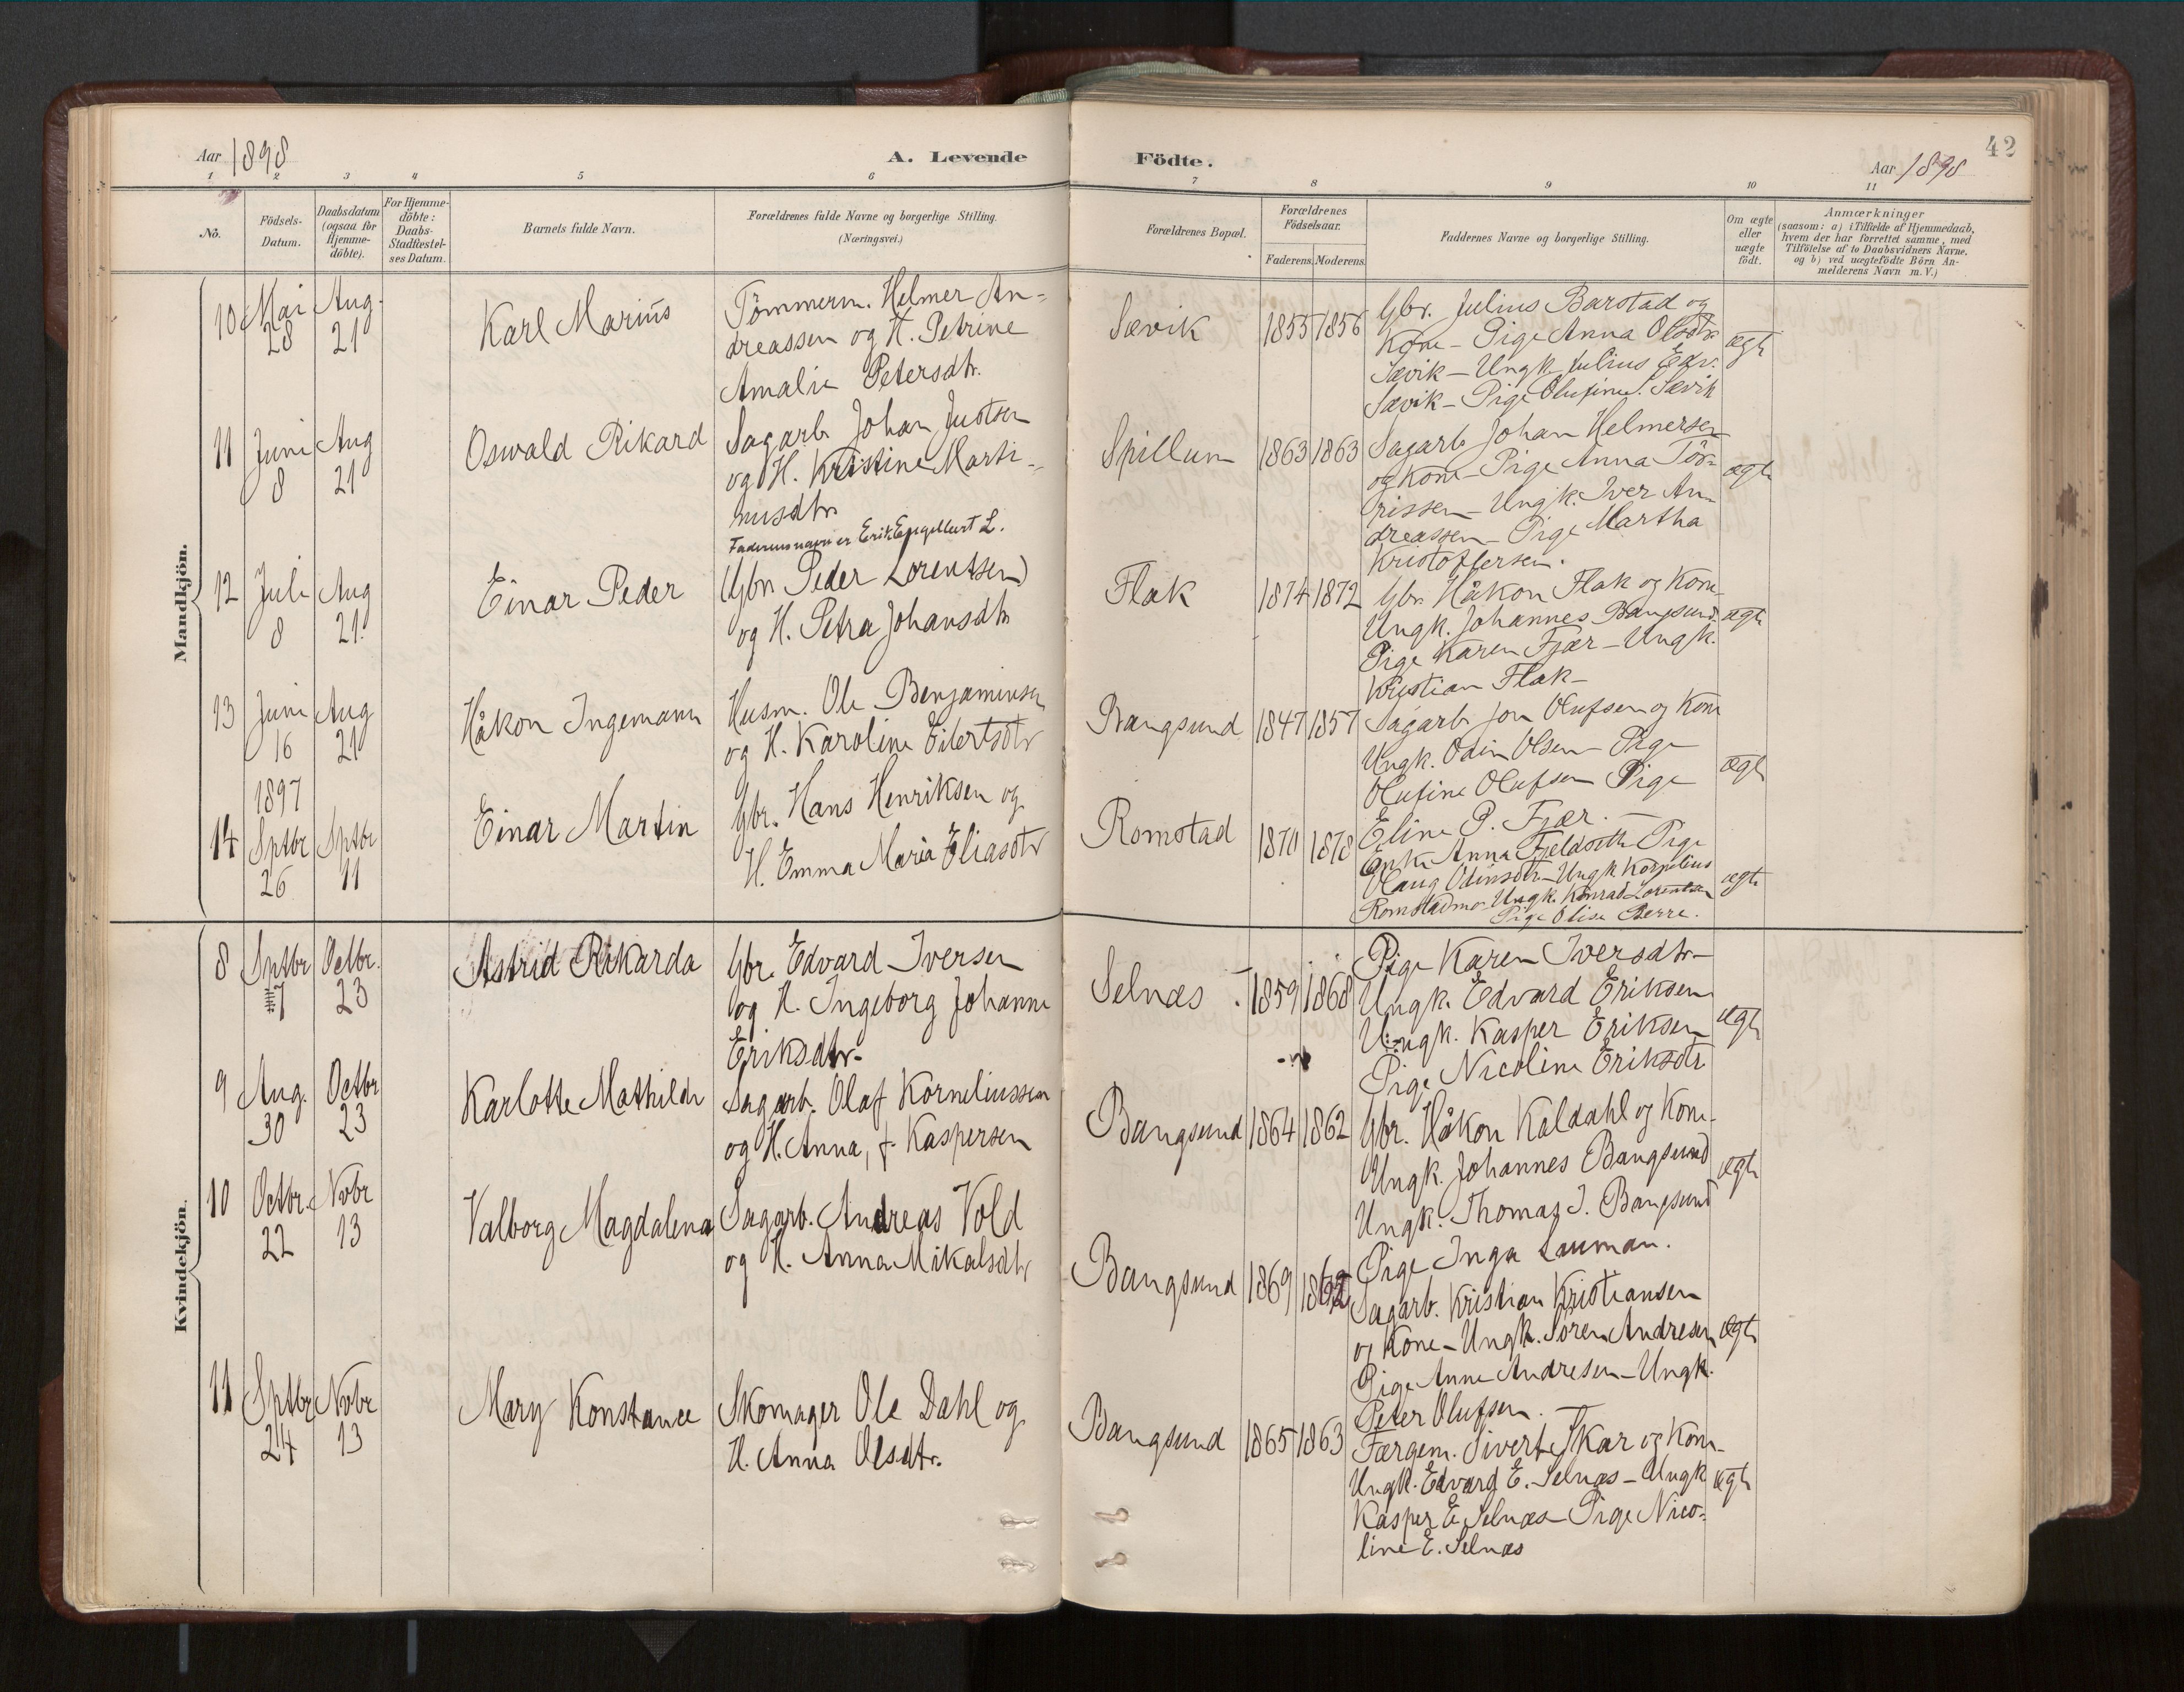 Aar 1898
A. Levende
Födte.
42
Aar 1898
1 2 3 4 5 6 7 8 9 10 11
No.
Födsels-
Datum.
Daabsdatum
(ogsaa for
Hjemme-
döbte).
For Hjemme-
döbte:
Daabs-
Stadfæstel-
ses Datum.
Barnets fulde Navn.
Forældrenes fulde Navne og borgerlige Stilling.
(Næringsvei.)
Forældrenes Bopæl.
Forældrenes
Födselsaar.
Faderens. Moderens.
Faddernes Navne og borgerlige Stilling.
Om ægte
eller
uægte
födt.
Anmærkninger
(saasom: a) i Tilfælde af Hjemmedaab,
hvem der har forrettet samme, med
Tilföielse af to Daabsvidners Navne,
og b) ved uægtefödte Börn An-
melderens Navn m. V.)
Mandkjön.
10
Mai
28
Aug.
21
Karl Marius
Tömmerm. Helmer An-
dreassen og H. Petrine
Amalie Petersdtr.
Sævik
1855 1856
Gbr. Julius Barstad og
Kone - Pige Anna Olsdtr
Sævik - Ungk Julius Edv.
Sævik - Pige Olufine Sævik
ægte
11
Juni
8
Aug
21
Oswald Rikard
Sagarb Johan Justsen
og H. Kristine Marti-
nusdtr
Spillum
1863 1863
Sagarb Johan Helmersen
og Kone - Pige Anna Tör-
rissen - Ungk. Iver An-
dreassen - Pige Martha
Kristoffersen.
ægte
12
Juli
8
Aug
21
Einar Peder
Faderens navn er Erik Engelbert L.
(Gbr Peder Lorentsen)
og H. Petra Johansdtr
Flak
1874 1872
Gbr. Håkon Flak og Kone
Ungk. Johannes Bangsund
Pige Karen Fjær - Ungk.
Kristian Flak -
ægte
13
Juni
16
Aug
21
Håkon Ingemann
Husm. Ole Benjaminsen
og H. Karoline Eilertsdtr
Bangsund
1847 1857
Sagarb Jon Olufsen og Kone
Ungk. Odin Olsen - Pige
Olufine Olufsen Pige
Eline P. Fjær. -
ægte
14
1897
Sptbr
26
Sptbr
11
Einar Martin
Gbr. Hans Henriksen og
H. Emma Maria Eliasdtr
Romstad
1870 1878
Enke Anna Fjeldseth Pige
Olaug Odinsdtr - Ungk Kornelius
Romstadmo - Ungk. Konrad Lorentsen
Pige Olise Berre.
ægte
Kvindekjön.
8
Sptbr
7
Octbr.
23
Astrid Rikarda
Gbr. Edvard Iversen
og H. Ingeborg Johanne
Eriksdtr.
Selnæs
1859 1868
Pige Karen Iversdtr -
Ungk. Edvard Eriksen
Ungk. Kasper Eriksen
Pige Nicoline Eriksdtr
ægte
9
Aug.
30
Octbr
23
Karlotte Mathilde
Sagarb. Olaf Korneliussen
og H. Anna, f. Kaspersen
Bangsund
1864 1862
Gbr. Håkon Kaldahl og Kone -
Ungk. Johannes Bangsund
Ungk. Thomas J. Bangsund
Pige Inga Lauman.
ægte
10
Octbr.
22
Nvbr
13
Valborg Magdalena
Sagarb. Andreas Vold
og H. Anna Mikalsdtr
Bangsund
1869
Sagarb. Kristian Kristiansen
og Kone - Ungk. Sören Andresen
Pige Anne Andresen - Ungk.
Peter Olufsen. -
ægte
11
Sptbr
24
Nvbr
13
Mary Konstance
Skomager Ole Dahl og
H. Anna Olsdtr.
Bangsund
1865 1863
Færgem. Sivert Skar og Kone -
Ungk. Edvard E. Selnæs - Ungk
Kasper E Selnæs - Pige Nico-
line E. Selnæs
ægte